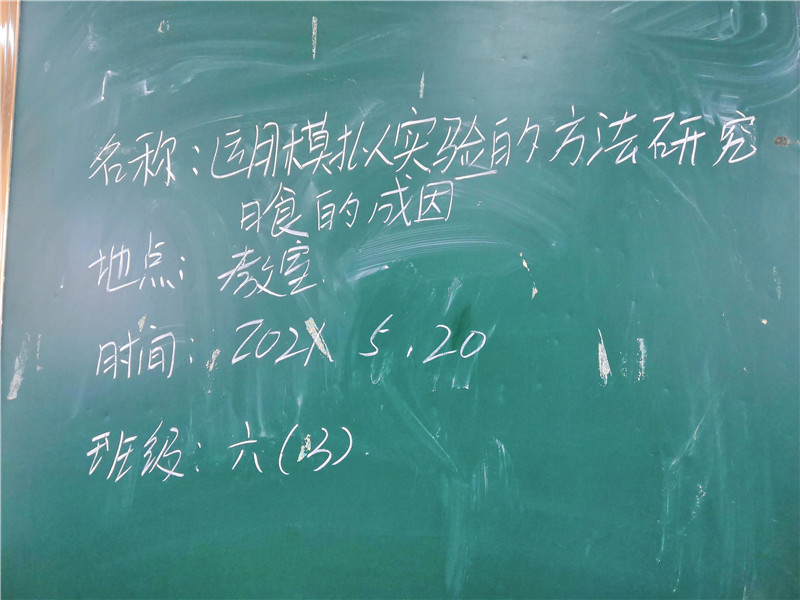 名称:运用模拟实验的方法研究
日食的成因
地点:教室
时间:2021 5.20
班级:六(3)